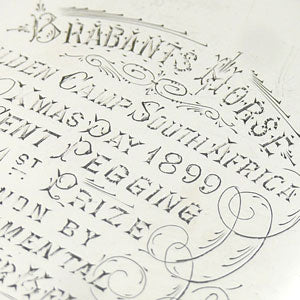 BRABANTS HORSE
LDEN CAMP SOUTH AFRICA
XMAS DAY 1899
ENT PEGGING
1ST PRIZE
ON BY
MENTAL